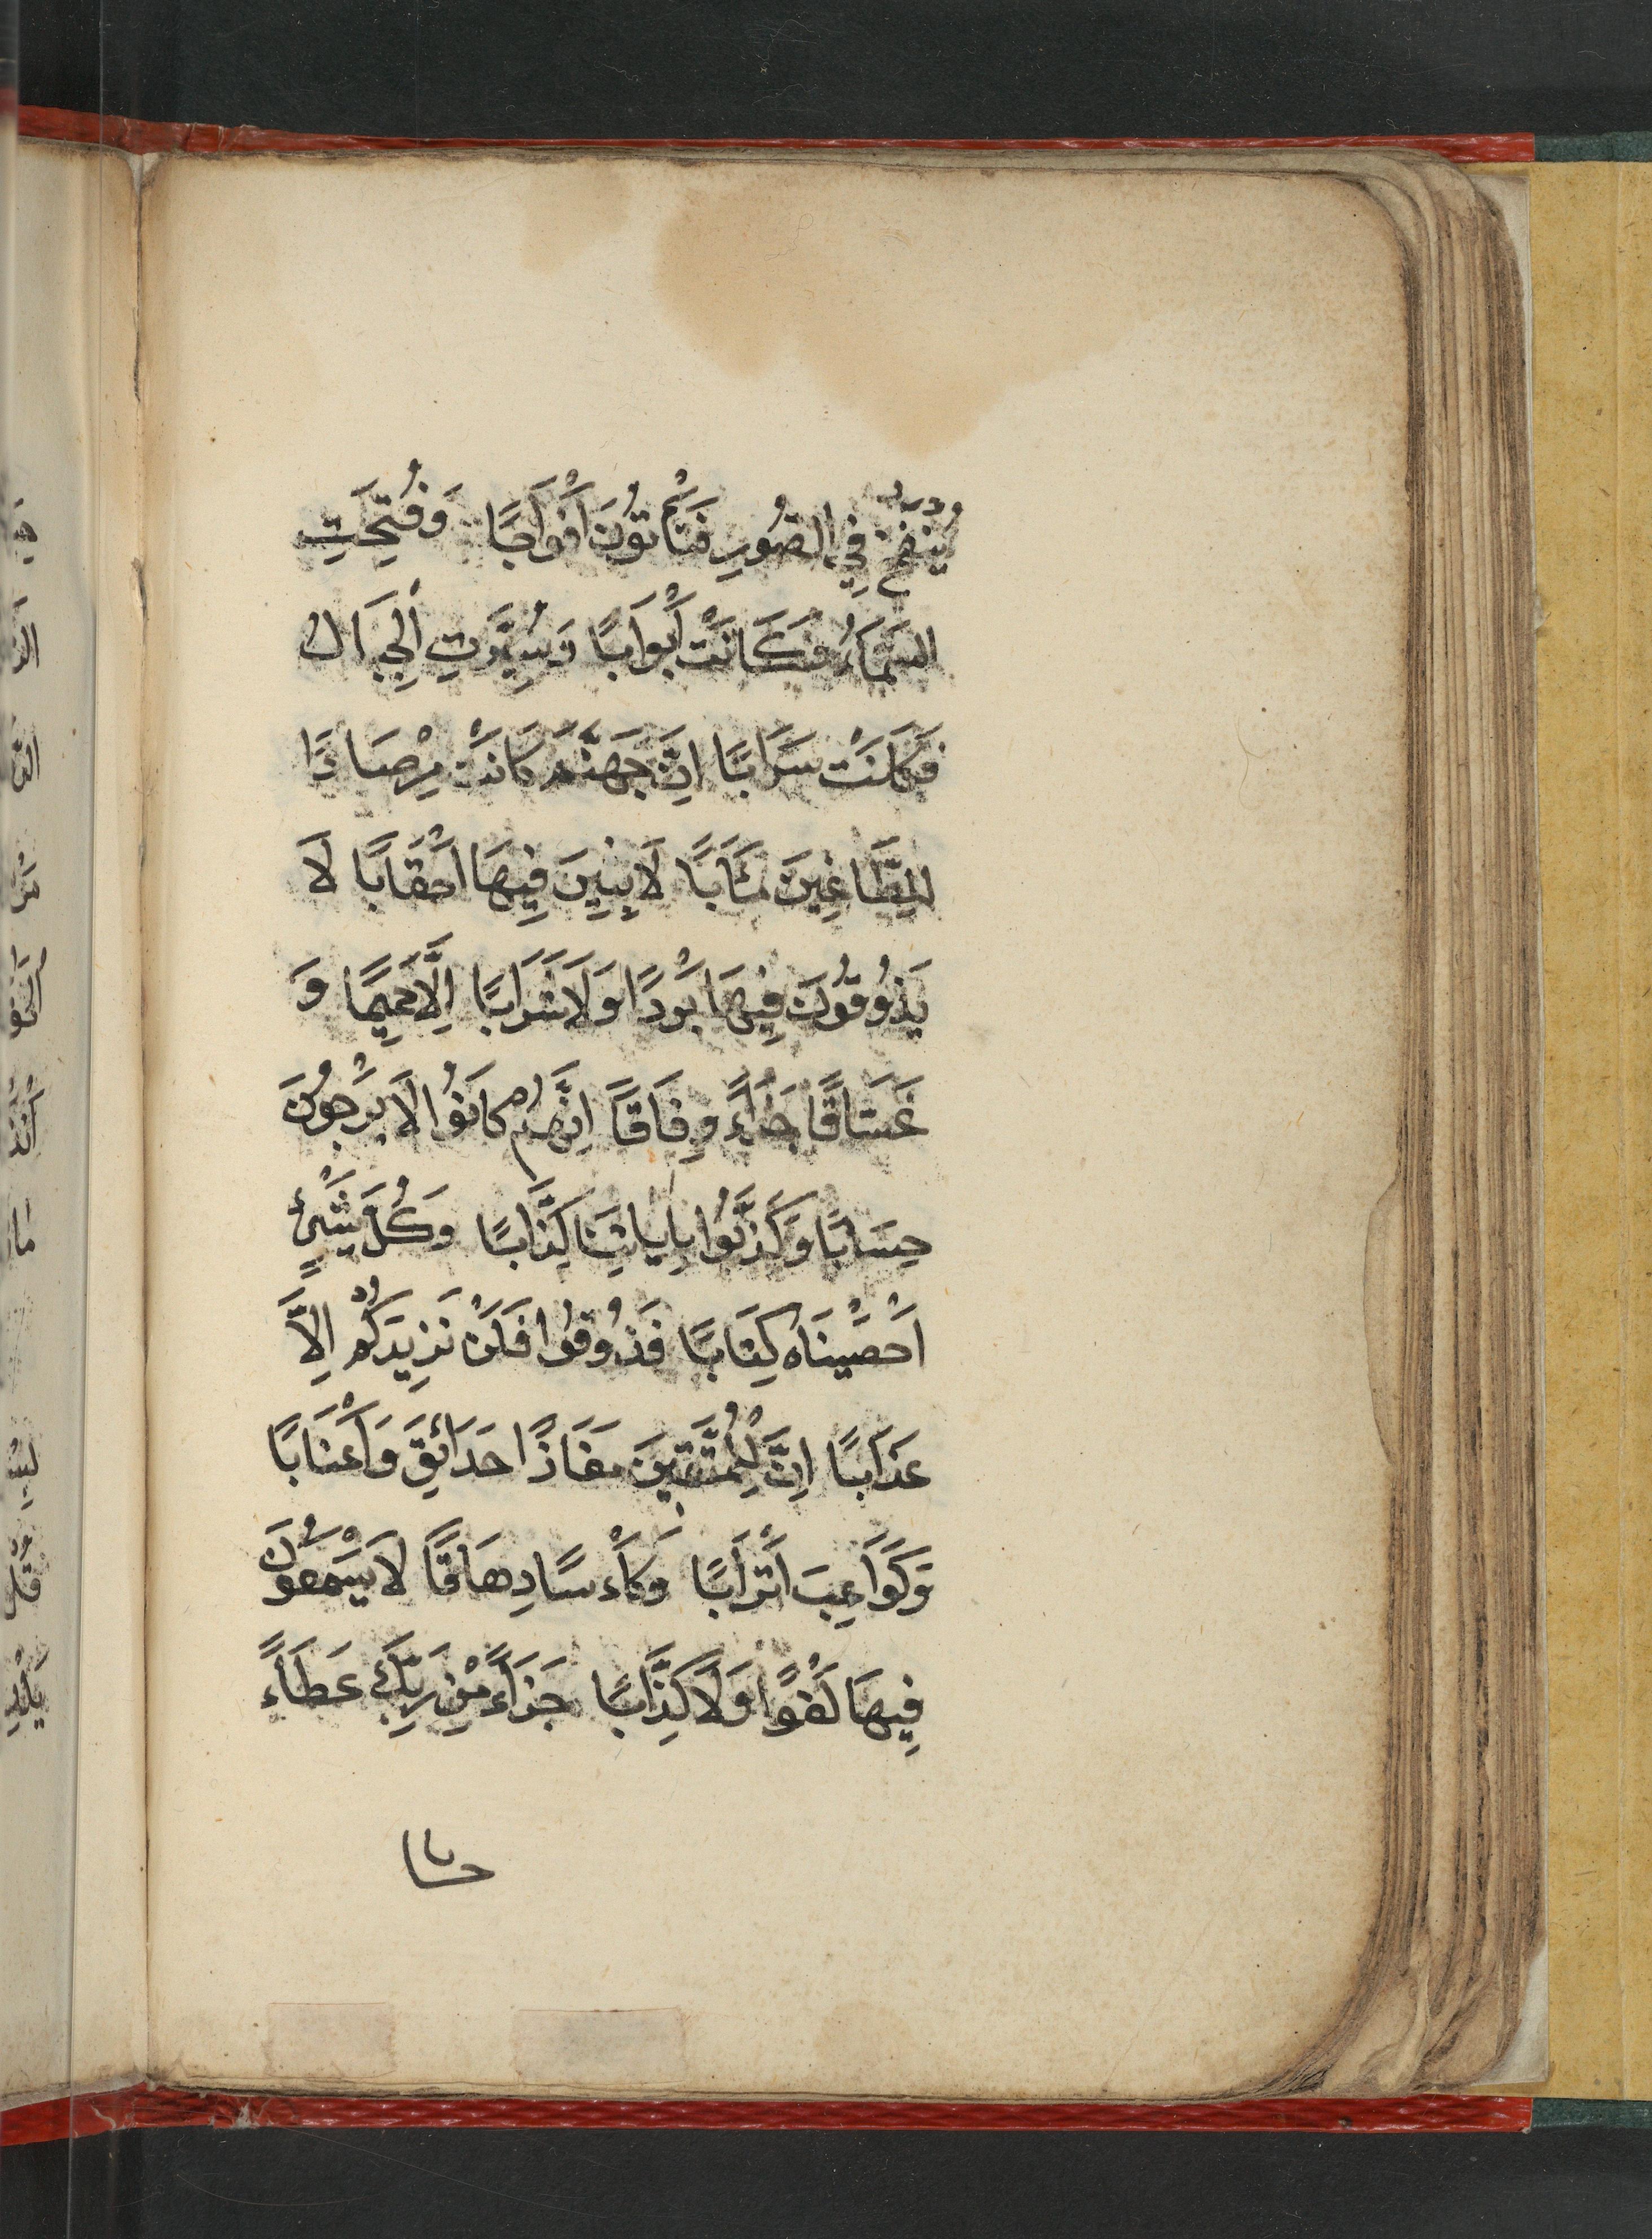 يُنْفَخُ فِي الصُّورِ فَتَأْتُونَ أَفْوَاجًا وَفُتِحَتِ
السَّمَاءُ فَكَانَتْ أَبْوَابًا وَسُيِّرَتِ الْجِبَالُ
فَكَانَتْ سَرَابًا اِنَّ جَهَنَّمَ كَانَتْ مِرْصَادًا
لِلطَّاغِينَ مَئَابًا لَابِثِينَ فِيهَا اَحْقَابًا لَا
يَذُوقُونَ فِيهَا بَرْدًا وَلَا شَرَابًا اِلَّا حَمِيمًا وَ
غَسَّاقًا جَزَاءً وِفَاقًا اِنَّهُمْ كَانُوا لَا يَرْجُونَ
حِسَابًا وَكَذَّبُوا بِاٰيَاتِنَا كِذَّابًا وَكُلَّ شَيْءٍ
اَحْصَيْنَاهُ كِتَابًا فَذُوقُوا فَلَنْ نَزِيدَكُمْ اِلَّا
عَذَابًا اِنَّ لِلْمُتَّقِينَ مَفَازًا حَدَائِقَ وَاَعْنَابًا
وَكَوَاعِبَ اَتْرَابًا وَكَأْسًا دِهَاقًا لَا يَسْمَعُونَ
فِيهَا لَغْوًا وَلَا كِذَّابًا جَزَاءً مِنْ رَبِّكَ عَطَاءً
حسابا